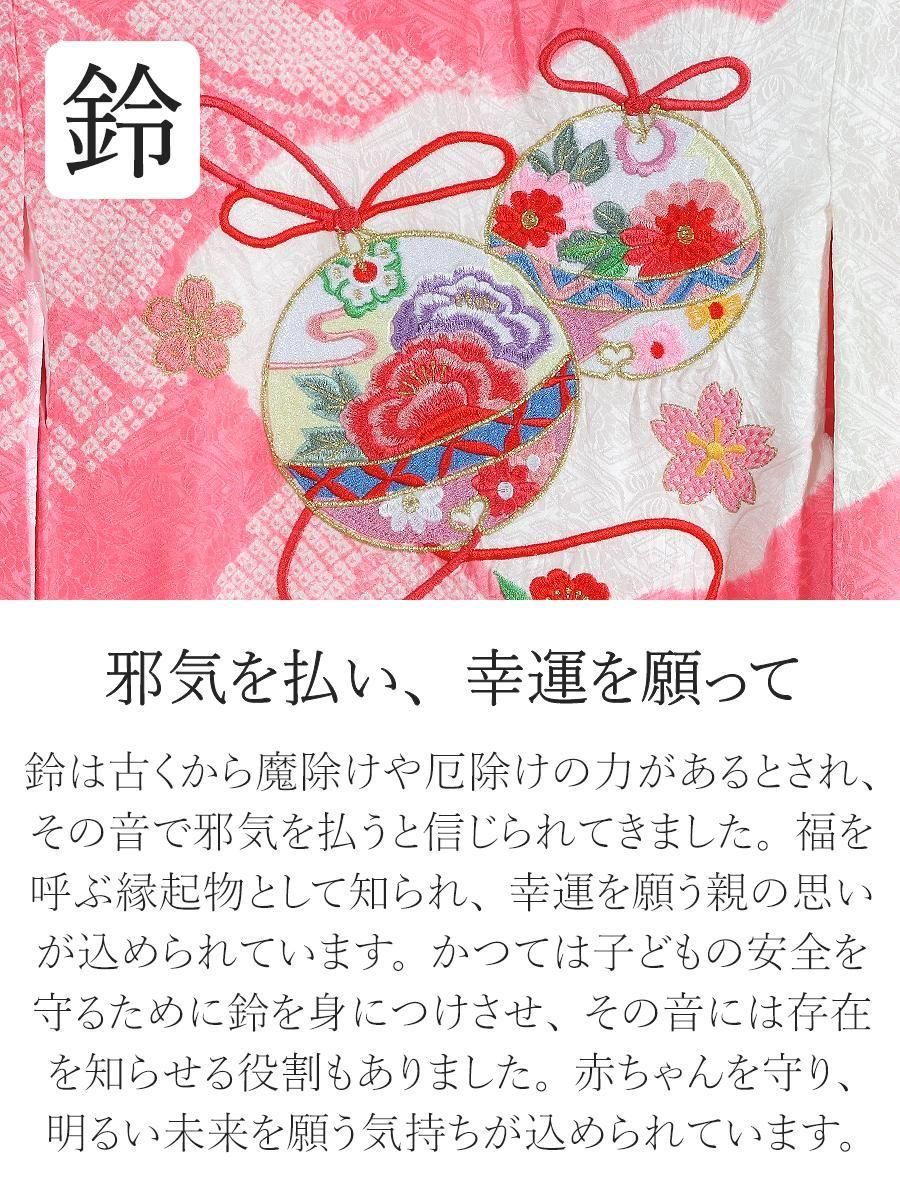 鈴
邪気を払い、幸運を願って
鈴は古くから魔除けや厄除けの力があるとされ、
その音で邪気を払うと信じられてきました。福を
呼ぶ縁起物として知られ、幸運を願う親の思い
が込められています。かつては子どもの安全を
守るために鈴を身につけさせ、その音には存在
を知らせる役割もありました。赤ちゃんを守り、
明るい未来を願う気持ちが込められています。